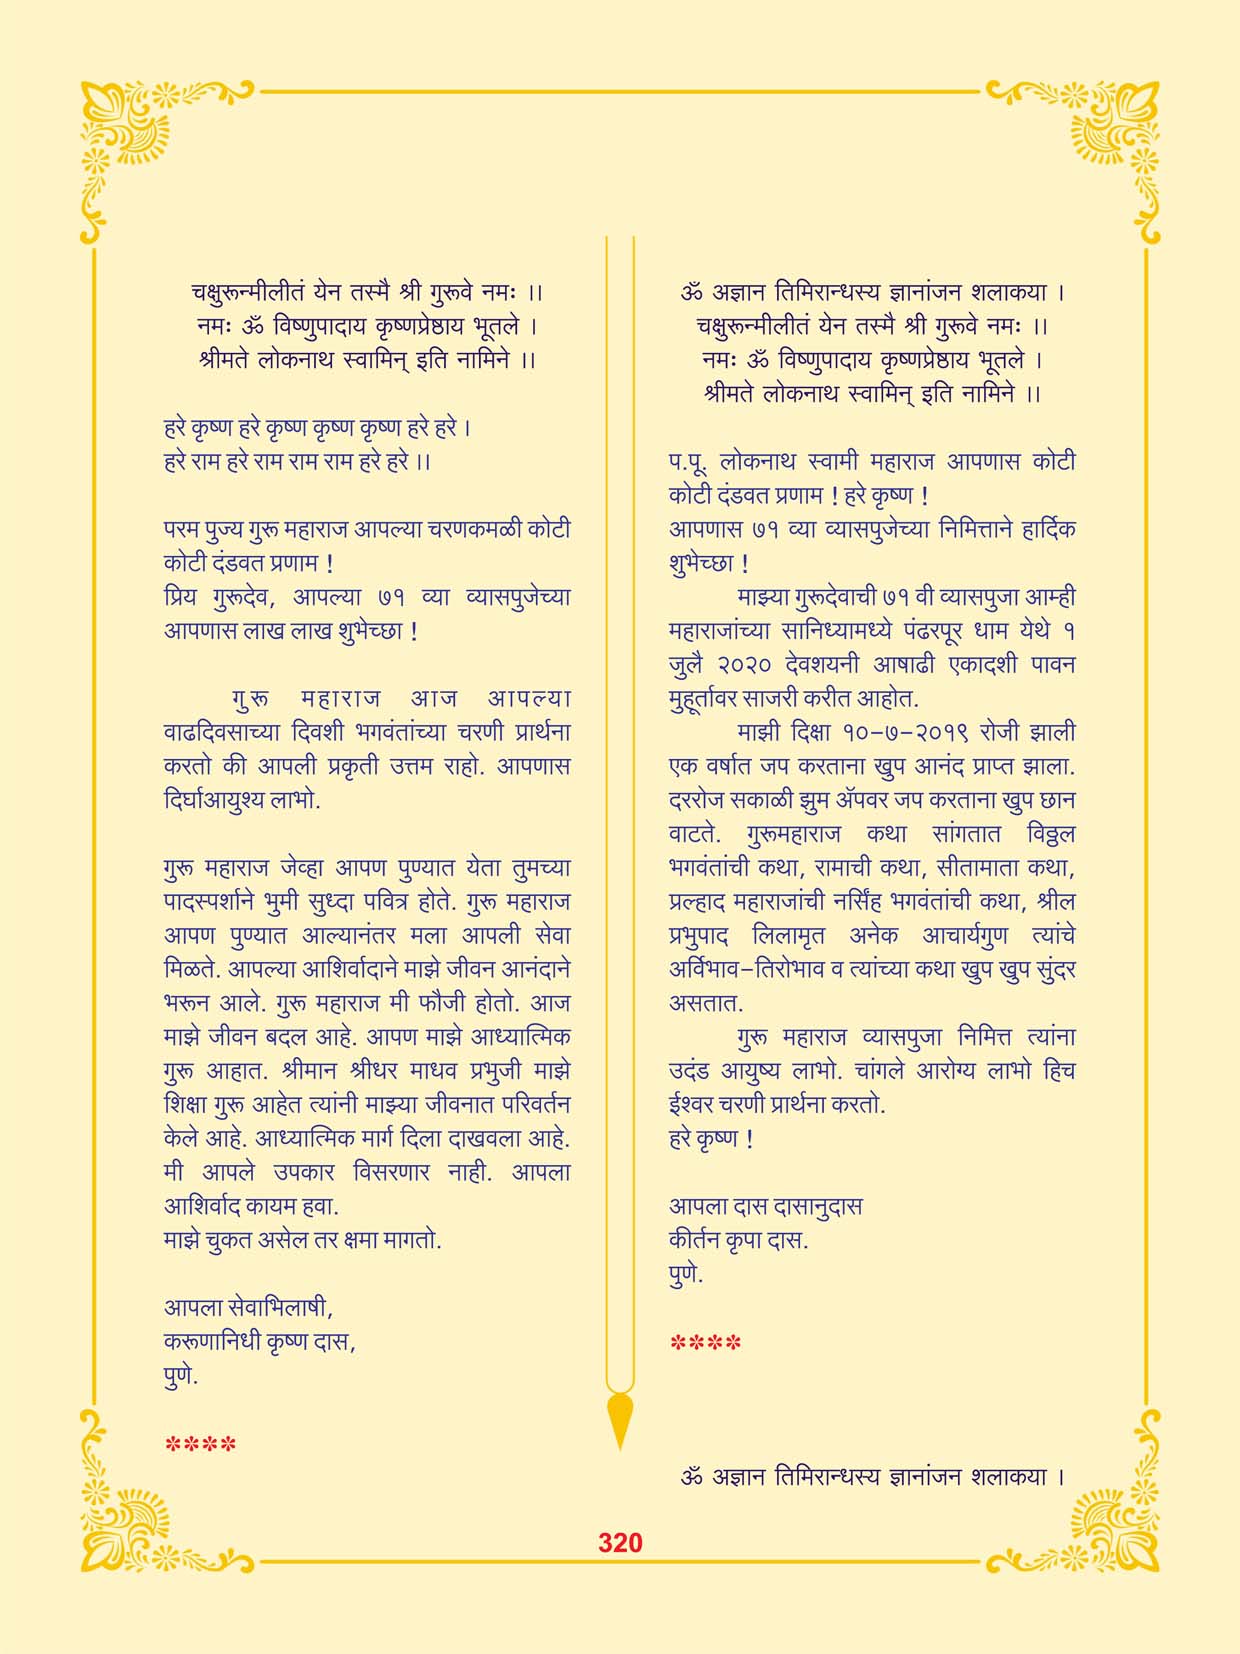 चक्षुरून्मीलीतं येन तस्मै श्री गुरूवे नमः ।।
नमः ॐ विष्णुपादाय कृष्णप्रेष्ठाय भूतले ।
श्रीमते लोकनाथ स्वामिन् इति नामिने ।।
हरे कृष्ण हरे कृष्ण कृष्ण कृष्ण हरे हरे ।
हरे राम हरे राम राम राम हरे हरे ।।
परम पुज्य गुरू महाराज आपल्या चरणकमळी कोटी
कोटी दंडवत प्रणाम !
प्रिय गुरूदेव, आपल्या ७१ व्या व्यासपुजेच्या
आपणास लाख लाख शुभेच्छा !
गुरू महाराज आज आपल्या
वाढदिवसाच्या दिवशी भगवंतांच्या चरणी प्रार्थना
करतो की आपली प्रकृती उत्तम राहो. आपणास
दिर्घाआयुश्य लाभो.
गुरू महाराज जेव्हा आपण पुण्यात येता तुमच्या
पादस्पर्शाने भुमी सुध्दा पवित्र होते. गुरू महाराज
आपण पुण्यात आल्यानंतर मला आपली सेवा
मिळते. आपल्या आशिर्वादाने माझे जीवन आनंदाने
भरून आले. गुरू महाराज मी फौजी होतो. आज
माझे जीवन बदल आहे. आपण माझे आध्यात्मिक
गुरू आहात. श्रीमान श्रीधर माधव प्रभुजी माझे
शिक्षा गुरू आहेत त्यांनी माझ्या जीवनात परिवर्तन
केले आहे. आध्यात्मिक मार्ग दिला दाखवला आहे.
मी आपले उपकार विसरणार नाही. आपला
आशिर्वाद कायम हवा.
माझे चुकत असेल तर क्षमा मागतो.
आपला सेवाभिलाषी,
करूणानिधी कृष्ण दास,
पुणे.
****
ॐ अज्ञान तिमिरान्धस्य ज्ञानांजन शलाकया ।
चक्षुरून्मीलीतं येन तस्मै श्री गुरूवे नमः ।।
नमः ॐ विष्णुपादाय कृष्णप्रेष्ठाय भूतले ।
श्रीमते लोकनाथ स्वामिन् इति नामिने ।।
प.पू. लोकनाथ स्वामी महाराज आपणास कोटी
कोटी दंडवत प्रणाम ! हरे कृष्ण !
आपणास ७१ व्या व्यासपुजेच्या निमित्ताने हार्दिक
शुभेच्छा !
माझ्या गुरूदेवाची ७१ वी व्यासपुजा आम्ही
महाराजांच्या सानिध्यामध्ये पंढरपूर धाम येथे १
जुलै २०२० देवशयनी आषाढी एकादशी पावन
मुहूर्तावर साजरी करीत आहोत.
माझी दिक्षा १०-७-२०१९ रोजी झाली
एक वर्षात जप करताना खुप आनंद प्राप्त झाला.
दररोज सकाळी झुम ॲपवर जप करताना खुप छान
वाटते. गुरूमहाराज कथा सांगतात विठ्ठल
भगवंतांची कथा, रामाची कथा, सीतामाता कथा,
प्रल्हाद महाराजांची नर्सिंह भगवंतांची कथा, श्रील
प्रभुपाद लिलामृत अनेक आचार्यगुण त्यांचे
अर्विभाव-तिरोभाव व त्यांच्या कथा खुप खुप सुंदर
असतात.
गुरू महाराज व्यासपुजा निमित्त त्यांना
उदंड आयुष्य लाभो. चांगले आरोग्य लाभो हिच
ईश्वर चरणी प्रार्थना करतो.
हरे कृष्ण !
आपला दास दासानुदास
कीर्तन कृपा दास.
पुणे.
****
ॐ अज्ञान तिमिरान्धस्य ज्ञानांजन शलाकया ।
320